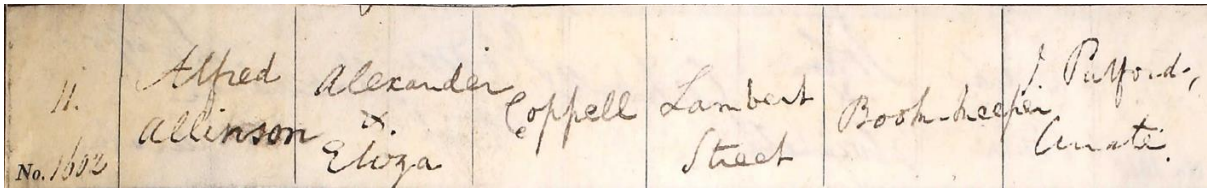 11.
No. 1602
Alfred
Allinson
Alexander
&
Eliza
Coppell
Lambert
Street
Book-keeper
J. Pulford,
Curate.